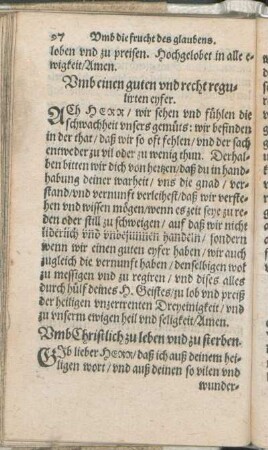 97 Vmb die frucht des glaubens.
loben vnd zu preisen. Hochgelobet in alle e-
wigkeit/Amen.
Vmb einen guten vnd recht regu-
lirten eyfer.
ACh HERR/ wir sehen vnd fühlen die
schwachheit vnsers gemüts: wir befinden
in der that/ daß wir so oft fehlen/ vnd der sach
entweder zu vil oder zu wenig thun. Derhal-
ben bitten wir dich von hertzen/ daß du in hand-
habung deiner warheit/ vns die gnad/ ver-
stand/ vnd vernunft verleihest/ daß wir verste-
hen vnd wissen mögen/ wenn es zeit seye zu re-
den oder still zu schweigen/ auf daß wir nicht
liderlich vnd vnbesunnen handeln/ sondern
wenn wir einen guten eyfer haben/ wir auch
zugleich die vernunft haben/ denselbigen wol
zu messigen vnd zu regiren/ vnd dises alles
durch hülf deines H. Geistes/ zu lob vnd preiß
der heiligen vnzertrenten Dreyeinigkeit/ vnd
zu vnserm ewigen heil vnd seligkeit/ Amen.
Vmb Christlich zu leben vnd zu sterben.
GIb lieber HERR/ daß ich auß deinem hei-
ligen wort/ vnd auß deinen so vilen vnd
wunder-